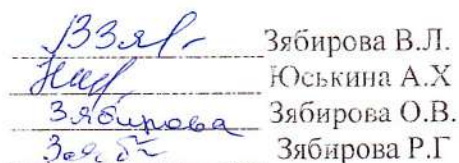 Зябирова В.Л.
Юськина А.Х
Зябирова Зябирова О.В.
Зябирова Р.Г